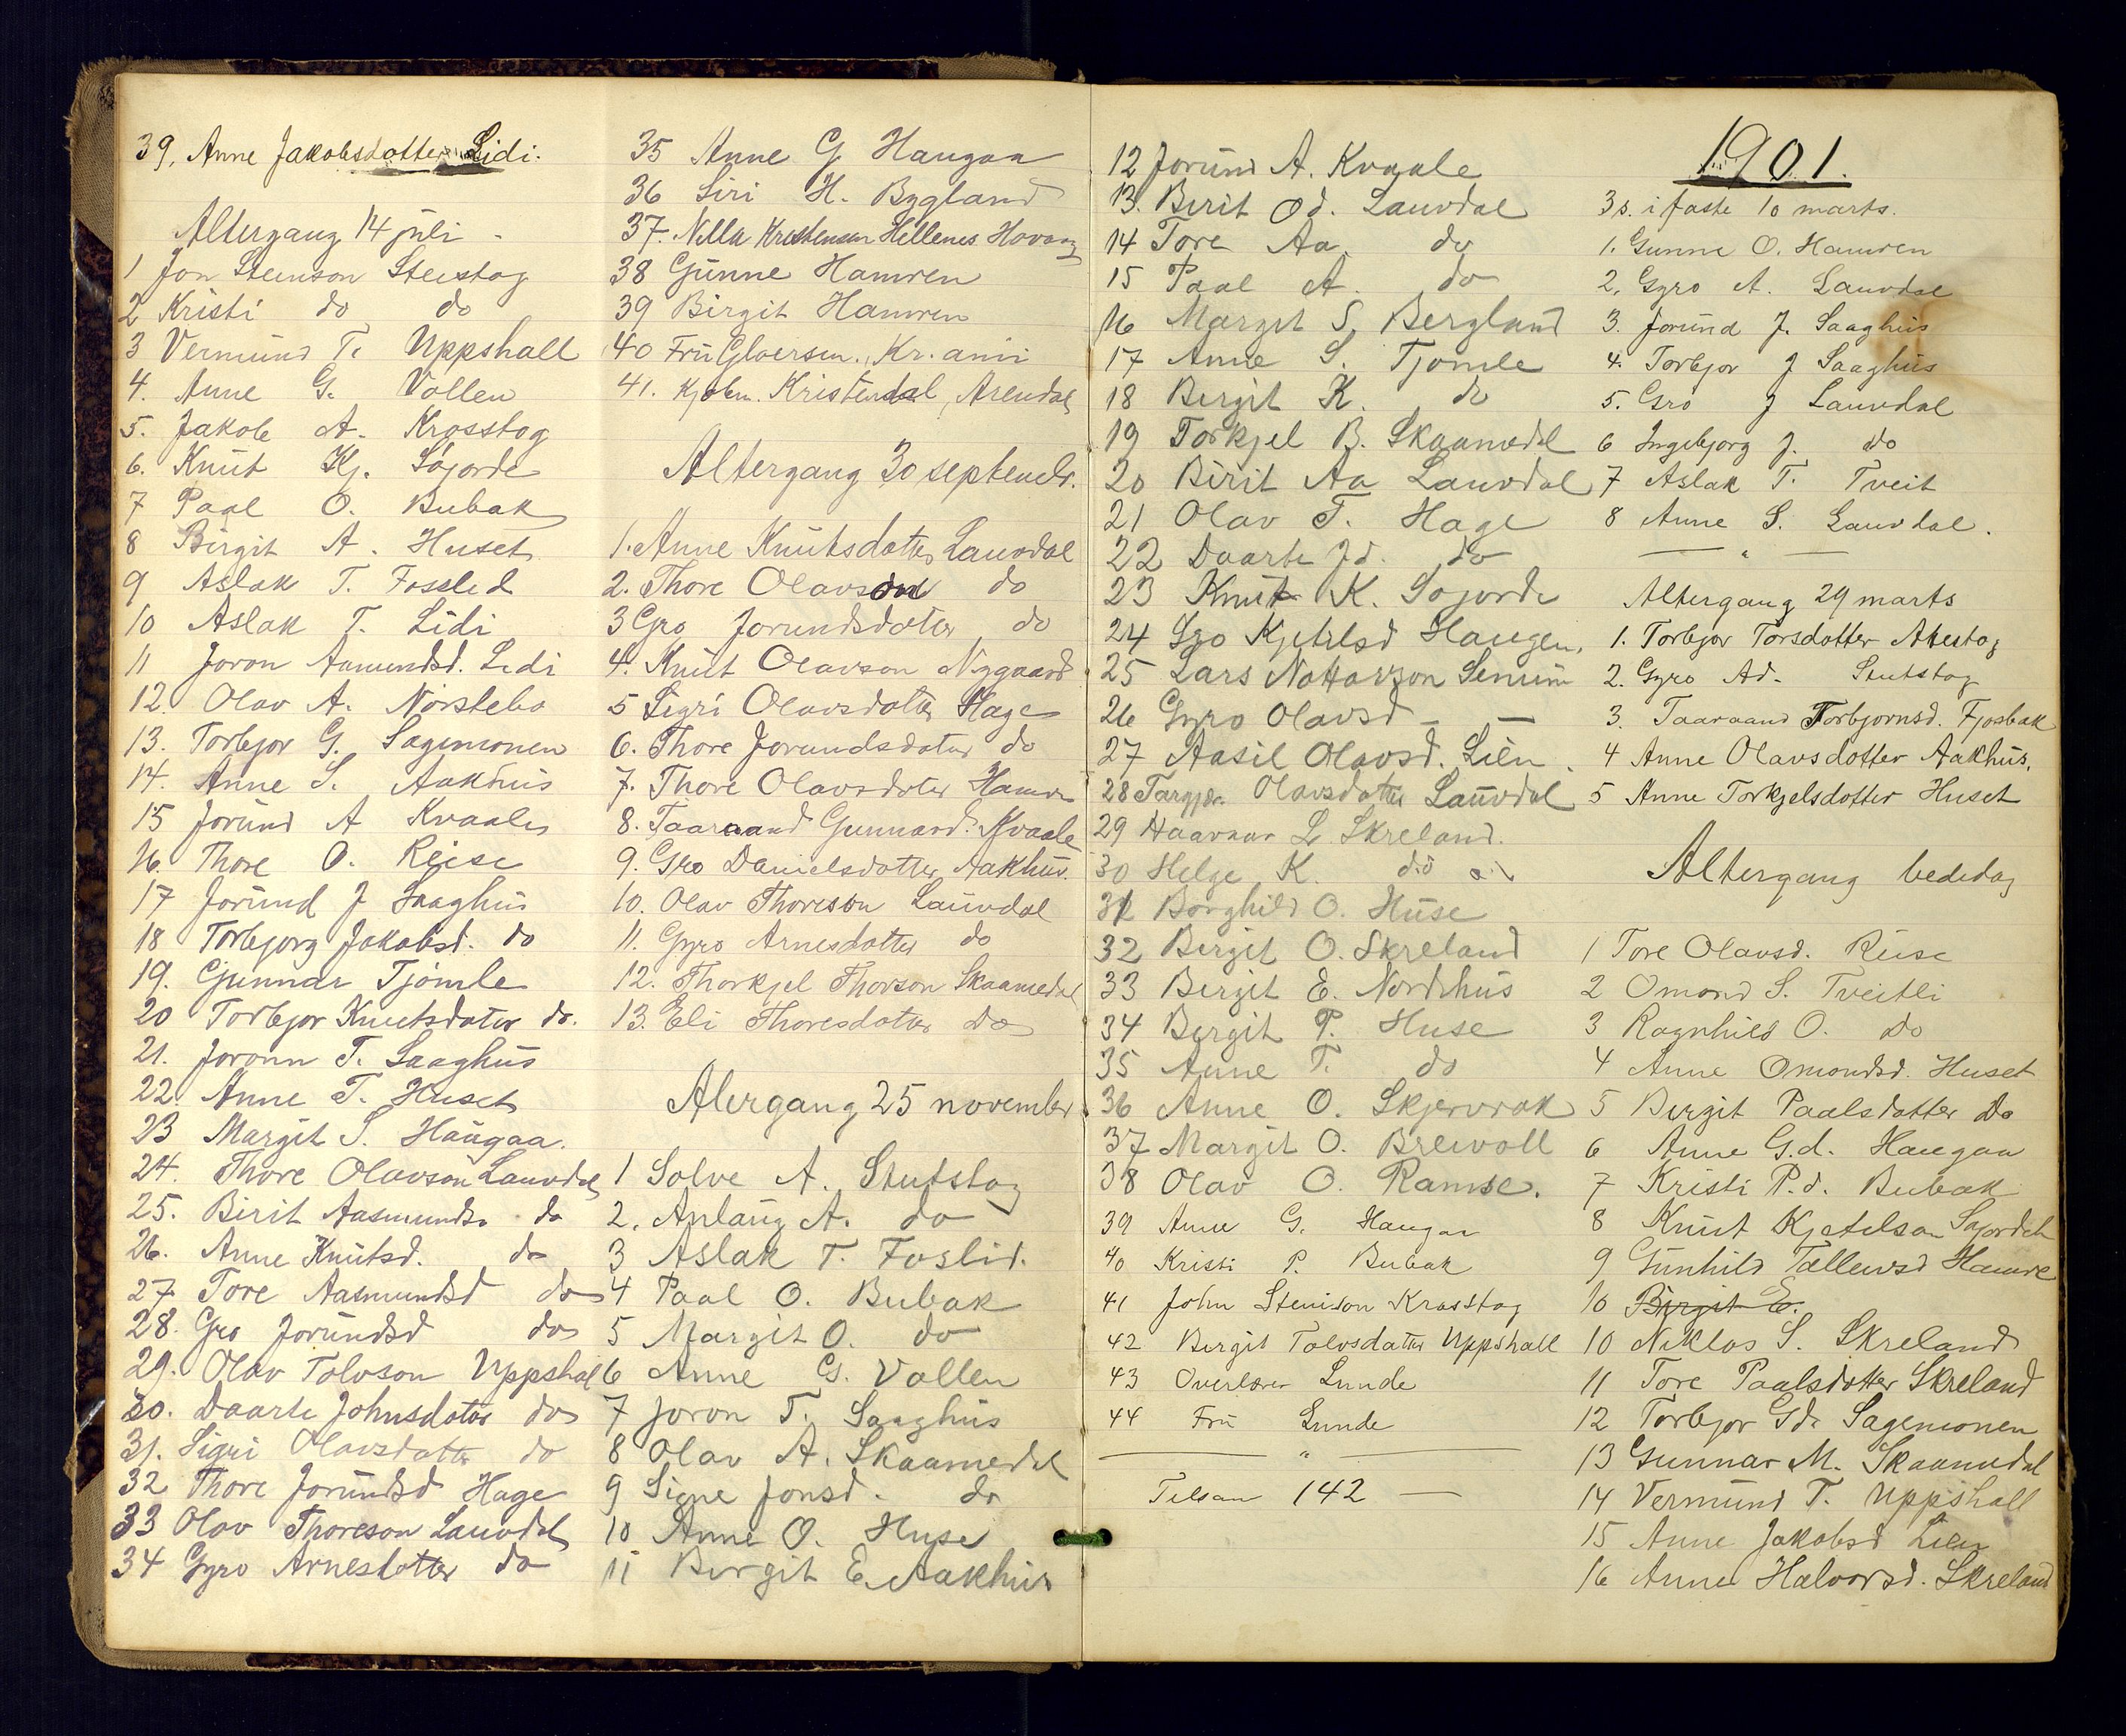 39, Anne Jakobsdotter Lidi.
Altergang 14 juli -
1 Jon Steinson Steistog
2 Kristi do do
3 Vermund T. Uppshall
4. Anne G. Vollen
5. Jakob A. Krosstog
6. Knut Kj. Sójorde
7 Paal O. Bubak
8 Birgit A. Huset
9 Aslak T. Fosslid
10 Aslak T. Lidi
11 Joron Aamundsd. Lidi
12. Olav A. Norstebo
13. Torbjor G. Sagemonen
14. Anne S. Aakhus
15 Jorund A Kvaale
16. Thore O. Reise
17 Jorund J Saaghus
18 Torbjorg Jakobsd. do
19. Gunnar Tjomle
20 Torbjor Knutsdater do.
21. Joronn T. Saaghus
22. Anne T. Huset
23 Margit S. Haugaa.
24. Thore Olavson Lauvdal
25. Birit Aasmunds. do
26. Anne Knutsd. do
27 Tore Aasmundsd do
28. Gro Jorundsd do
29. Olav Tolvson Uppshal
30. Daarte Johnsdater do
31. Sigri Olavsdatter do
32 Thore Jorundsd Hage
33 Olav Thoreson Lauvdal
34 Gyro Arnesdotter do
35 Anne G Haugaa
36 Siri H. Bygland
37. Nella Kristensen Hellenes Hovang
38 Gunne Hamren
39 Birgit Hamren
40 Fru Gloersen. Kr. ania
41. Kjobm. Kristendal, Arendal
Altergang 30 septembr.
1. Anne Knutsdotter Lauvdal
2. Thore Olavson do
3 Gro Jorundsdotter do
4. Knut Olavson Nygaard
5 Sigri Olavsdotter Hage
6. Thore Jorundsdater do
7. Thore Olavsdoter Hamre
8. Taaraand Gunnard. Kvaale
9. Gro Danielsdotter Aakhus.
10. Olav Thoreson Lauvdal
11. Gyro Arnesdotter do
12. Thorkjel Thorson Skaamedal
13. Eli Thoresdotter do
Alergang 25 november
1 Solve A. Stutstog
2. Anlaug A. do
3 Aslak T. Foslid.
4 Paal O. Bubak
5 Margit O. do
6 Anne G. Vollen
7 Joron T. Saaghus
8 Olav A. Skaamedal
9 Signe Jonsd. do
10 Anne O. Huse
11 Birgit E. Aakhus
12 Jorund A. Kvaale
13. Birit Od. Lauvdal
14 Tore Aa. do
15 Paal A. do
16 Margit S. Bergland
17 Anne S. Tjomle
18 Birgit K. do
19 Torkjel B. Skaamedal
20 Birit Aa Lauvdal
21 Olav T. Hage
22 Daarte Jd. do
23 Knut K. Sojorde
24 Gro Kjetilsd Haugen.
25 Lars Nottarson Senum
26 Gyro Olavsd — —
27 Aasil Olavsd. Lien.
28 Targjer Olavsdatter Lauvdal
29 Haavar L Skreland.
30 Helge K. do
31 Borghild O. Huse
32 Birgit O. Skreland
33 Birgit E. Nordhus
34 Birgit P. Huse
35 Anne T. do
36 Anne O. Skjervrak
37 Margit O. Breivoll
38 Olav O. Ramse.
39 Anne G. Haugaa
40 Kristi P. Bubak
41 John Steinson Krosstog
42 Birgit Tolvsdatter Uppshall
43 Overlærer Lunde
44 Fru Lunde
— " —
Tilsam 142 —
1901.
3s. i faste 10 marts.
1. Gunne O. Hamren
2. Gyro A. Lauvdal
3. Jorund J. Saaghus
4. Torbjor J Saaghus
5. Gro J Lauvdal
6 Ingebjorg J. do
7 Aslak T. Tveit
8 Anne S. Lauvdal.
— " —
Altergang 29 marts
1. Torbjor Torsdotter Akestog
2. Gyro Ad. Stutstog
3. Taaraand Torbjornsd. Fjosbak
4 Anne Olavsdotter Aakhus.
5 Anne Torkjelsdotter Huset
Altergang bededag
1 Tore Olavsd. Reise
2 Omond S. Tveitli
3 Ragnhild O. do
4 Anne Omondsd. Huset
5 Birgit Paalsdatter do
6 Anne G.d. Haugaa
7 Kristi P.d. Bubak
8 Knut Kjetelson
9 Gunhild Tallevsd Hamre
10 Birgit E.
10 Niklos S. Skreland
11 Tore Paalsdotter Skreland
12 Torbjor Gd. Sagemonen
13 Gunnar M. Skaamedal
14 Vermund T. Uppshall
15 Anne Jakobsd Lien
16 Anne Halvorsd. Skreland